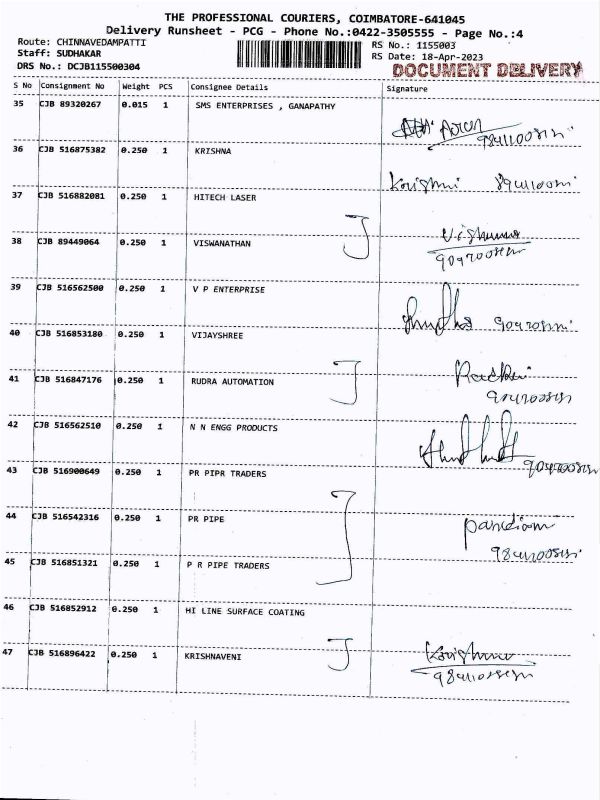 THE PROFESSIONAL COURIERS, COIMBATORE-641045
Delivery Runsheet - PCG - Phone No.:0422-3505555 - Page No.:4
Route: CHINNAVEDAMPATTI
Staff: SUDHAKAR
DRS No.: DCJB115500304
RS No.: 1155003
RS Date: 18-Apr-2023
DOCUMENT DELIVERY
S No Consignment No Weight PCS Consignee Details Signature
35 CJB 89320267 0.015 1 SMS ENTERPRISES , GANAPATHY
36 CJB 516875382 0.250 1 KRISHNA
37 CJB 516882081 0.250 1 HITECH LASER
38 CJB 89449064 0.250 1 VISWANATHAN
39 CJB 516562500 0.250 1 V P ENTERPRISE
40 CJB 516853180 0.250 1 VIJAYSHREE
41 CJB 516847176 0.250 1 RUDRA AUTOMATION
42 CJB 516562510 0.250 1 N N ENGG PRODUCTS
43 CJB 516900649 0.250 1 PR PIPR TRADERS
44 CJB 516542316 0.250 1 PR PIPE
45 CJB 516851321 0.250 1 P R PIPE TRADERS
46 CJB 516852912 0.250 1 HI LINE SURFACE COATING
47 CJB 516896422 0.250 1 KRISHNAVENI